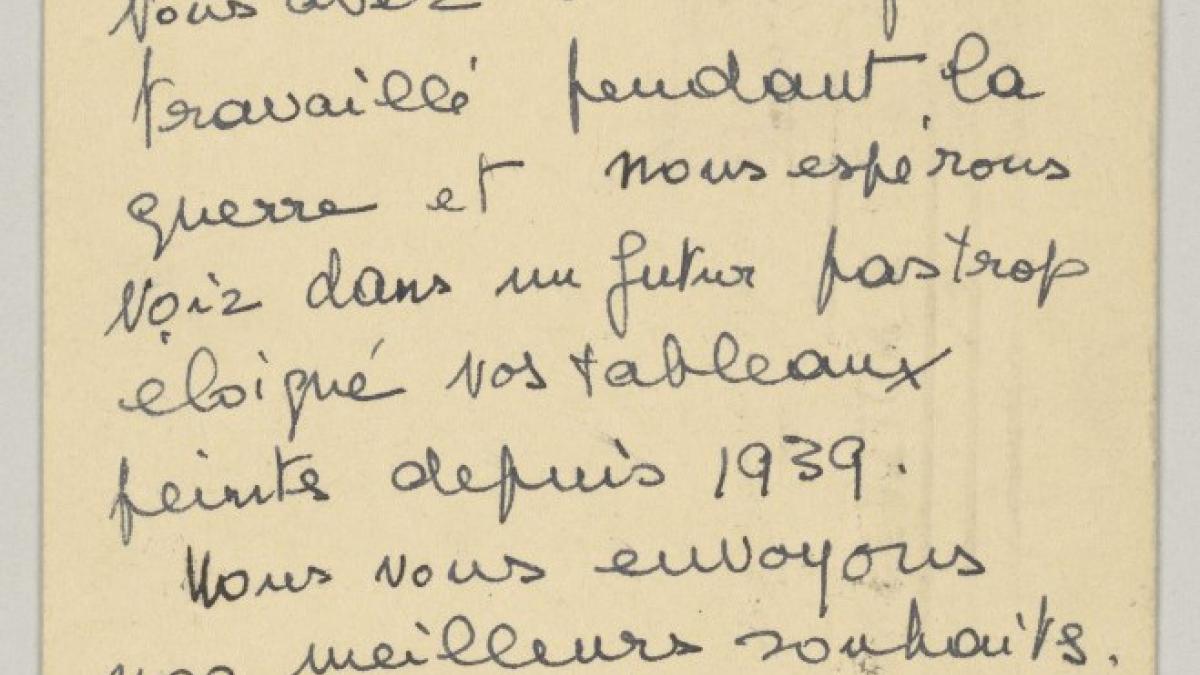 vous avez
travaillé pendant la
guerre et nous espérons
voir dans un futur pas trop
éloigné vos tableaux
peints depuis 1939.
Nous vous envoyons
nos meilleurs souhaits.